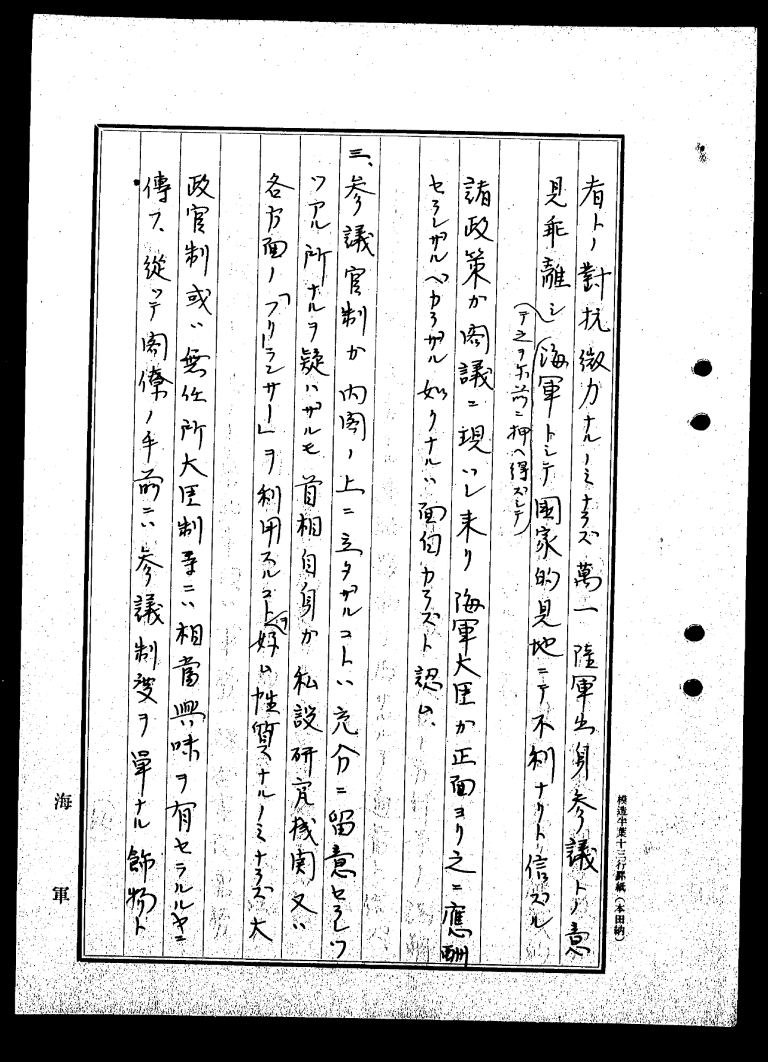 者トノ對抗微力ナルノミナラズ萬一陸軍出身參議トノ意
見乖離シ海軍トシテ國家的見地ニテ不利ナリト信ズル
(テ之ヲ午前ニ押ヘ得ズシテ)
諸政策カ閣議ニ現ハレ来リ海軍大臣カ正面ヨリ之ニ應酬
セラレザルベカラザル如クナルハ面白カラズト認ム、
三、参議官制カ内閣ノ上ニ立タザルコトハ充分ニ留意セラレツ
ツアル所ナルヲ疑ハザルモ首相自身カ私設研究機関又ハ
各方面ノ「フリーランサー」ヲ利用スルコトヲ好ム性質ナルノミナラズ大
政官制或ハ無任所大臣制等ニハ相當興味ヲ有セラルルヤニ
傳フ、從ッテ閣僚ノ手前ニハ参議制度ヲ單ナル飾物ト
海軍
模造半葉十三行罫紙(本田納)